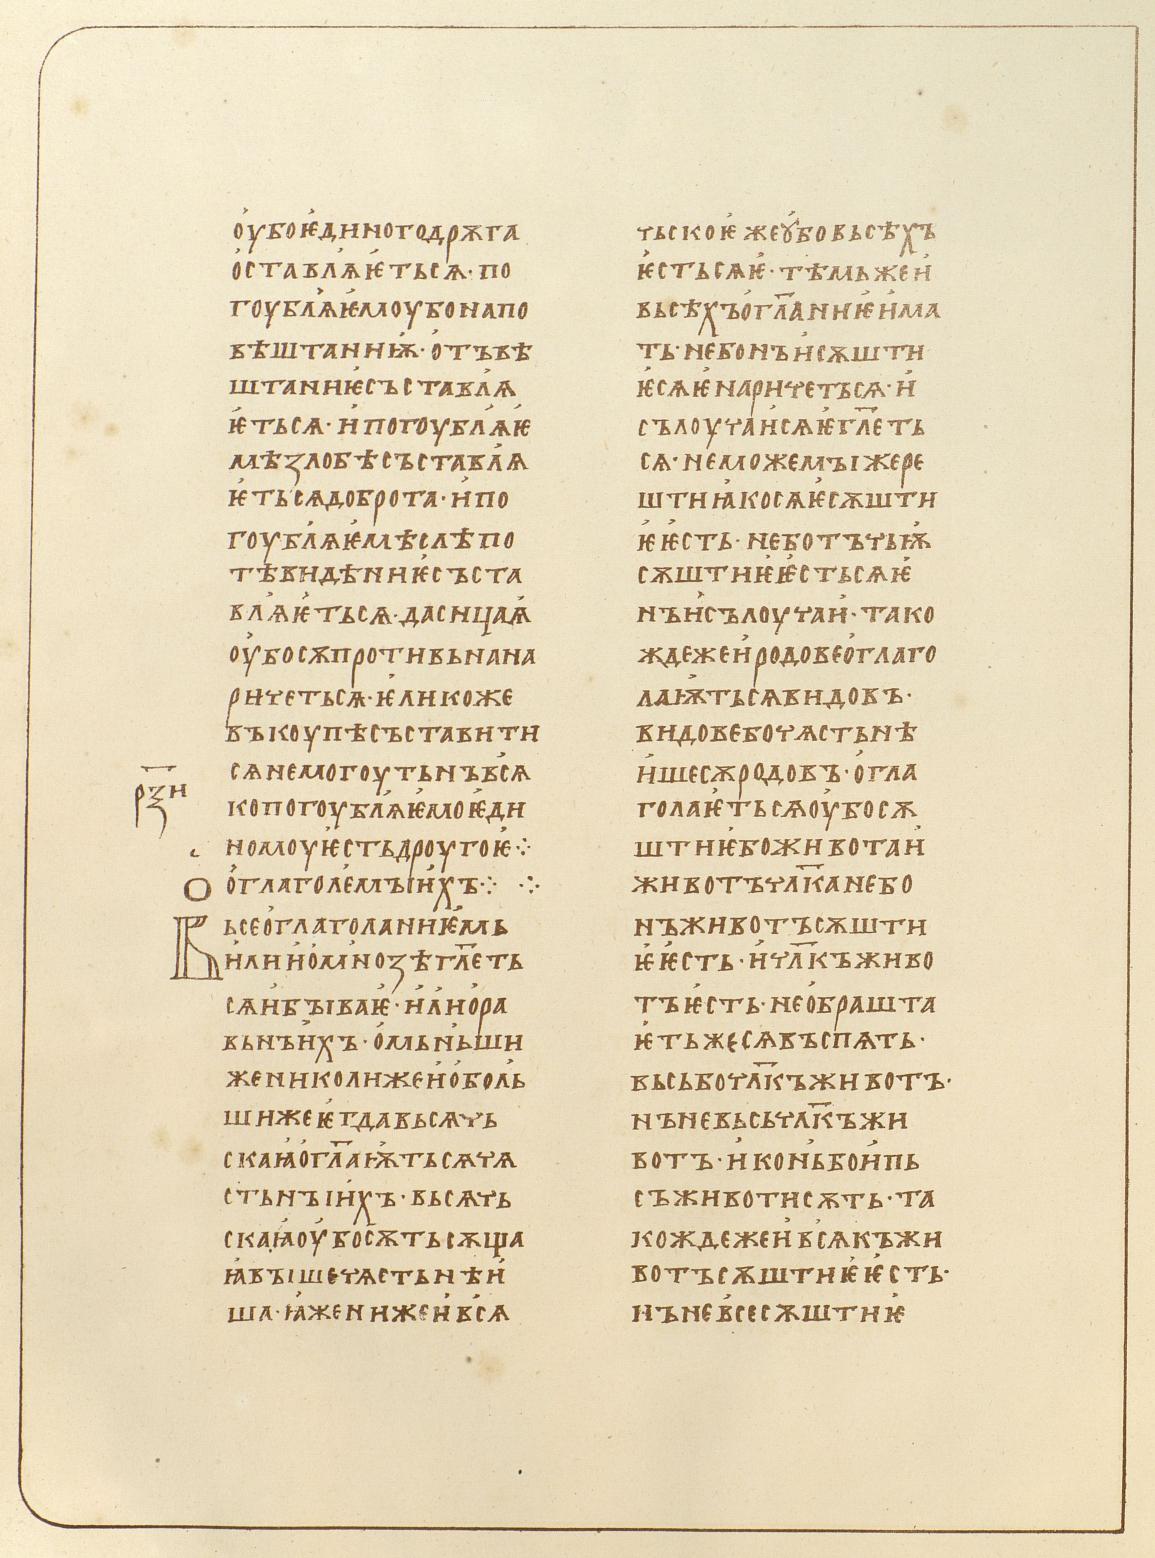 оубоѥдиногодрѫга
оставлѧѥтьсѧ· по
гоублѧѥмоубонапо
вѣштаниѭ· отъвѣ
штаниѥсъставлѧ
ѥтьсѧ· ипогоублѧѥ
мѣзлобѣсъставлѧ
ѥтьсѧдоброта· ипо
гоублѧѥмѣслѣпо
тѣвидѣниѥсъста
влѧѥтьсѧ· дасицаꙗ
оубосѫпротивьнана
ричетьсѧ· ѥликоже
въкоупѣсъставити
сѧнемогоутьнъвсꙗ
р҃зи
копогоублѧѥмоѥди
номоуѥстьдроугоѥ⁘
оглаголемыихъ⁘ ⁘
Вьсеоглаголаниѥмь
илииомнозѣгл҃еть
сѧибываѥ· илиора
вьныихъ· омьньши
женнколижеиоболь
шижеѥгдавьсꙗчь
скаꙗогл҃аѭтьсѧчѧ
стьныихъ· вьсꙗчь
скаꙗоубосѫтьсѫща
ꙗвышечѧстьнѣи
ша· ꙗженижеивсꙗ
чьскоѥжеоубовьсѣхъ
ѥстьсꙗѥ· тѣмьжеи
вьсѣхъогл҃аниѥима
ть· небонъисѫшти
ѥсꙗѥнаричетьсѧ· и
сълоучаисꙗѥгл҃еть
сѧ· неможемыжере
штиꙗкосꙗѥсѫшти
ѥѥсть· неботъчьѭ
сѫштиѥѥстьсꙗѥ
нъисълоучаи· тако
ждежеиродовеоглаго
лаѭтьсѧвидовъ·
видовебочѧстьнѣ
ишесѫродовъ· огла
голаѥтьсѧоубосѫ
штиѥбоживотаи
животъчл҃канебо
нъживотъсѫшти
ѥѥсть· ичл҃къживо
тъѥсть· необрашта
ѥтьжесѧвъспѧть·
вьсьбочл҃къживотъ·
нъневьсьчл҃къжи
вотъ· иконьбоипь
съживотисѫть· та
кождежеивсꙗкъжи
вотъсѫштиѥѥсть·
нъневсесѫштиѥ